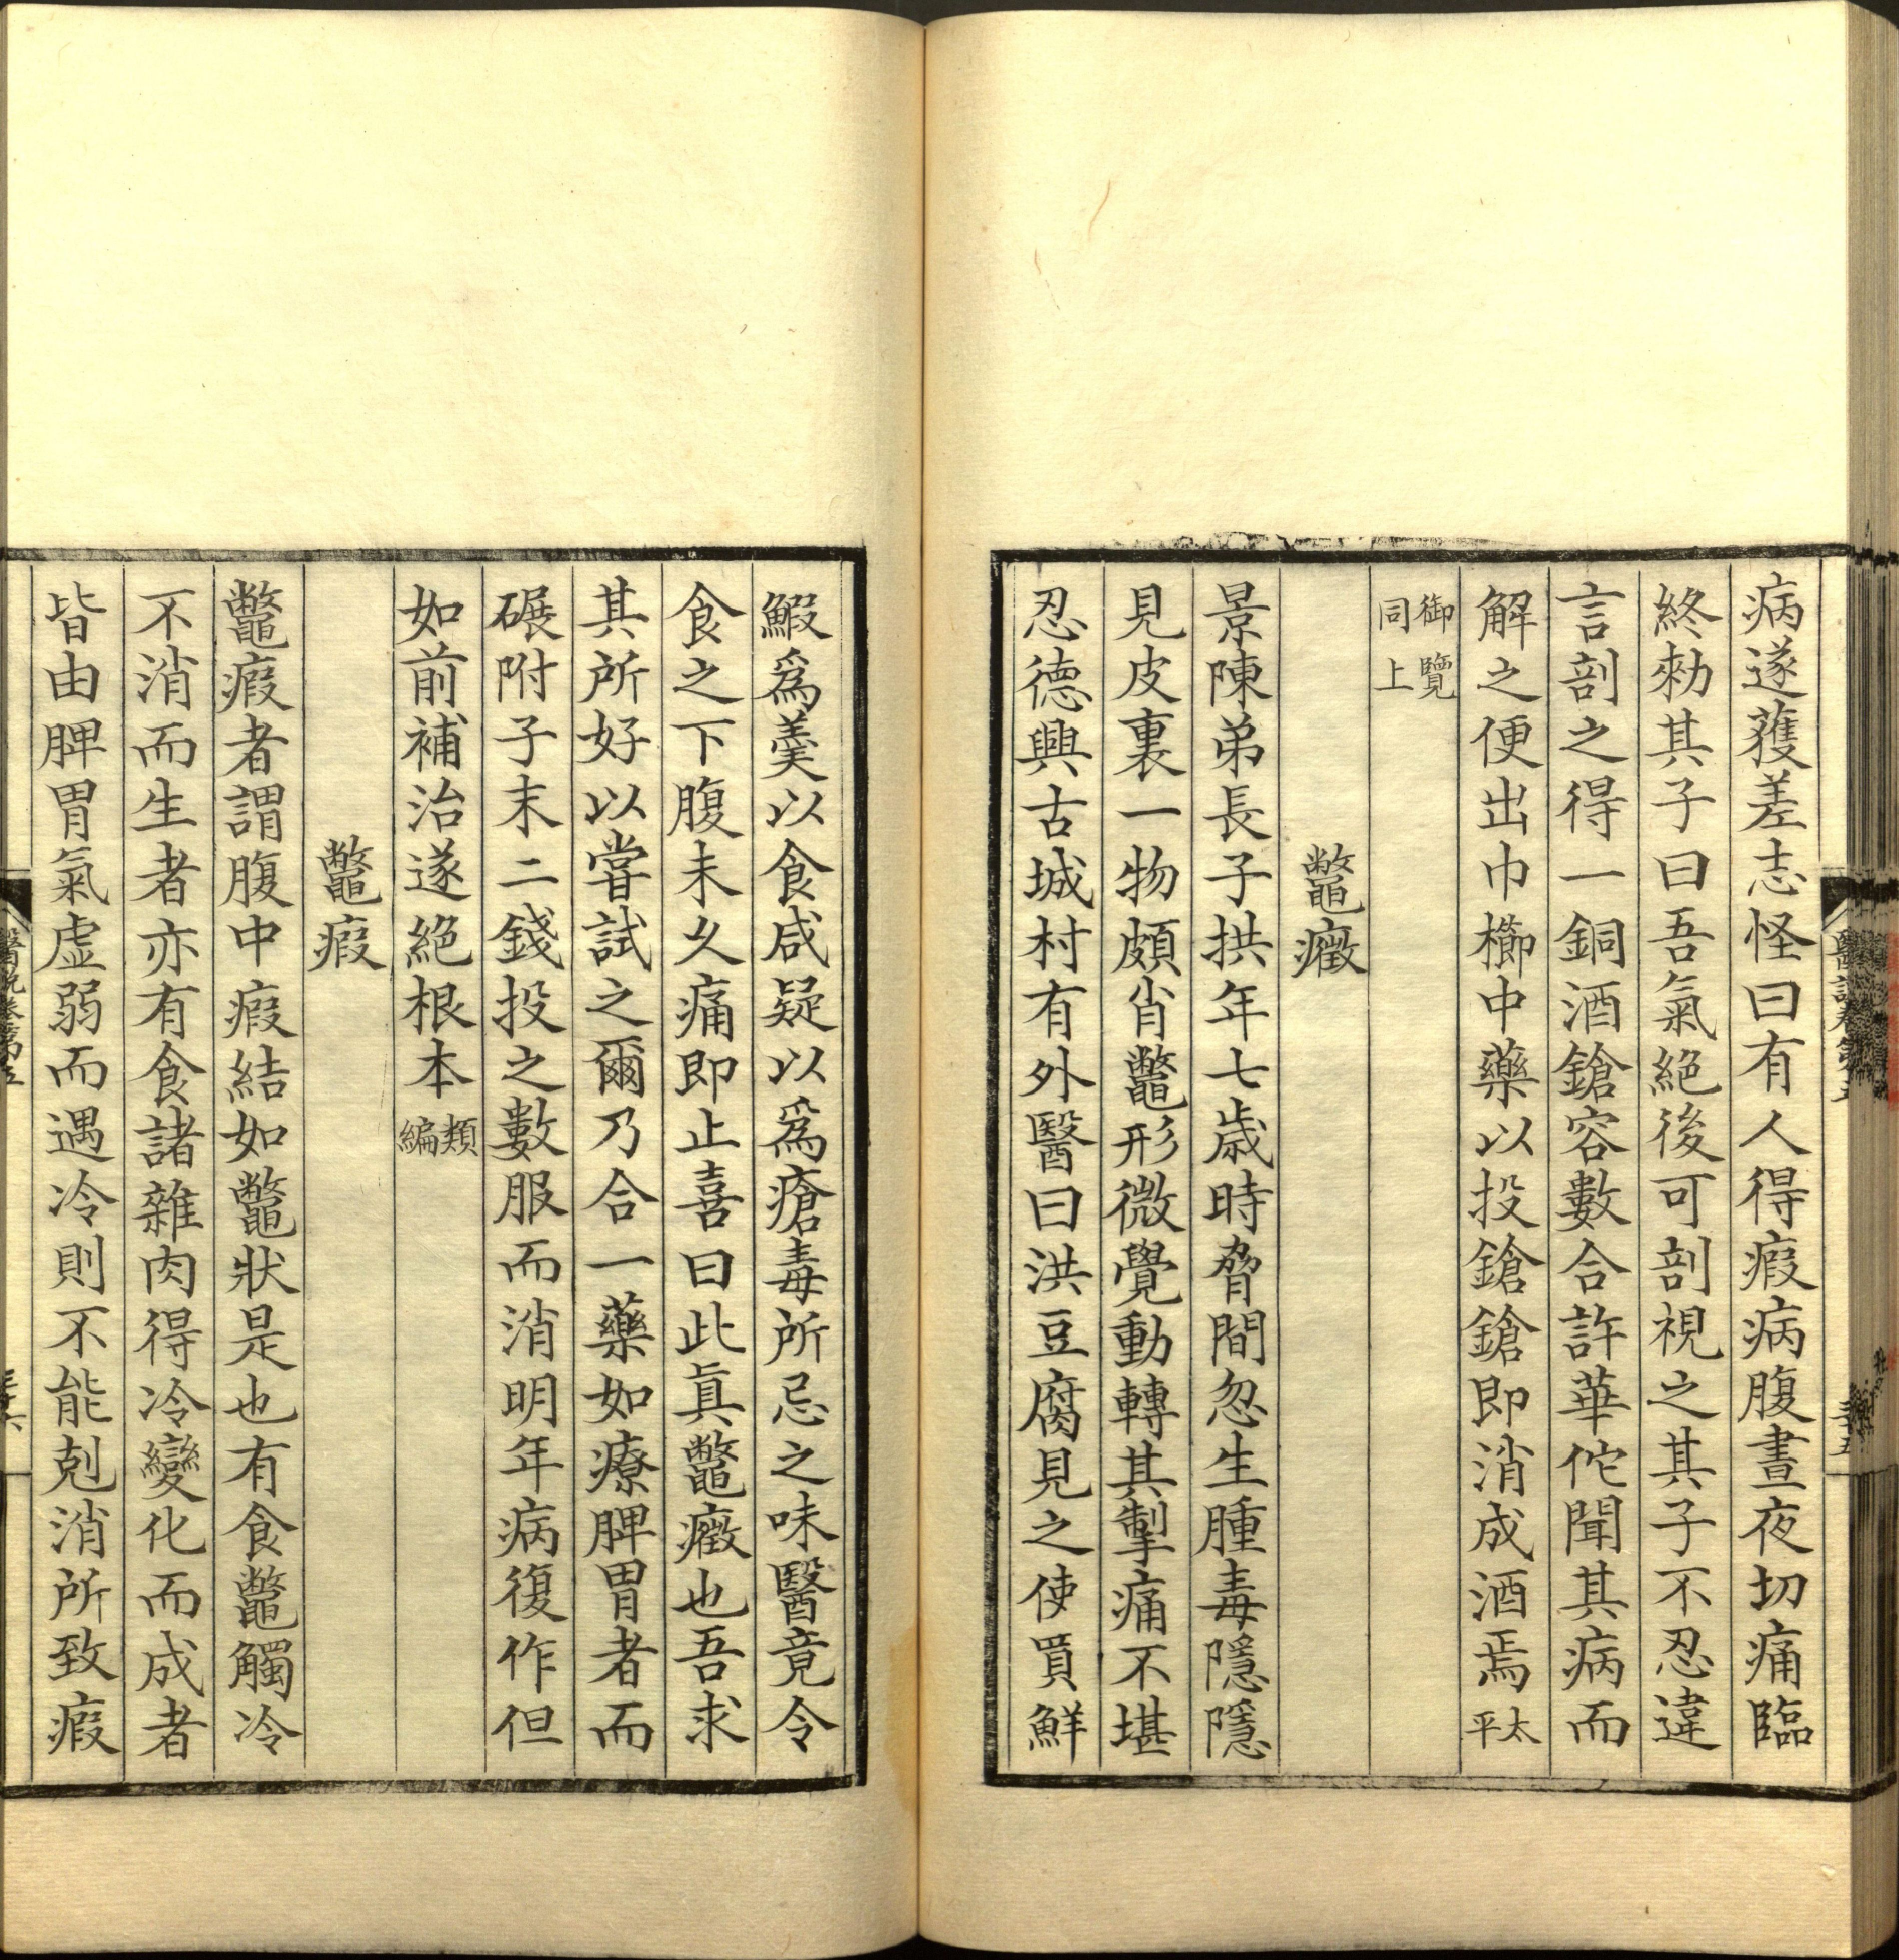 病遂蒦差志怪曰有人得瘕病腹晝夜切痛臨
終勑其子曰吾氣絕後可剖視之其子不忍違
言剖之得一銅酒鎗容數合許華佗聞其病而
解之便出巾櫛中藥以投鎗鎗即消成酒焉太平
御覽同上
鼈癥
景陳弟長子拱年七歲時脅間忽生腫毒隱隱
見皮裏一物頗肖鼈形微覺動轉其掣痛不堪
忍德興古城村有外醫曰洪豆腐見之使買鮮
鰕爲羹以食咸疑以爲瘡毒所忌之味醫竟令
食之下腹未久痛即止喜曰此眞鼈癥也吾求
其所好以嘗試之爾乃合一藥如療脾胃者而
碾附子末二錢投之數服而消明年病復作但
如前補治遂絕根本類編
鼈瘕
鼈瘕者謂腹中瘕結如鼈狀是也有食鼈觸冷
不消而生者亦有食諸雜肉得冷變化而成者
皆由脾胃氣虛弱而遇冷則不能剋消所致瘕
醫說卷第五